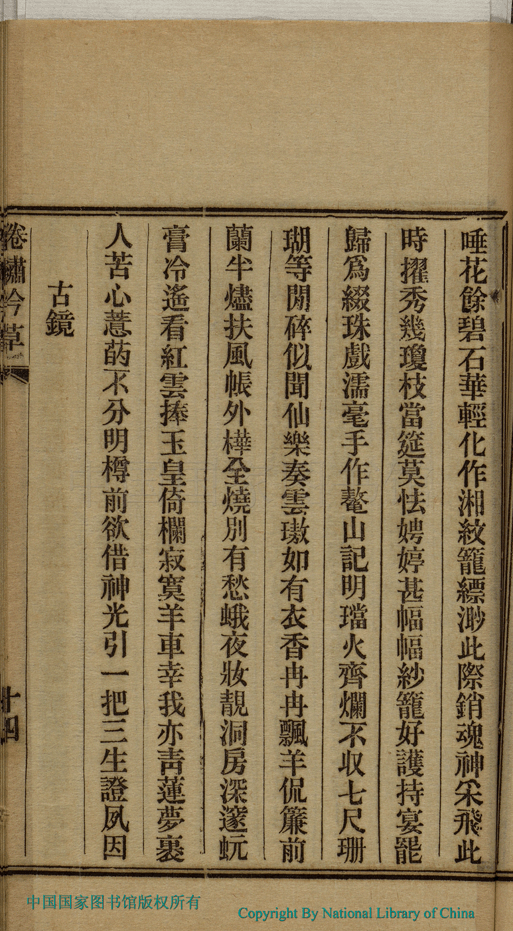 唾花餘碧石華輕化作湘紋籠縹渺此際銷魂神采飛此
時擢秀幾瓊枝當筵莫怯娉婷甚幅幅紗籠好護持宴罷
歸爲綴珠戲濡毫手作鼇山記明璫火齊爛不收七尺珊
瑚等閒碎似聞仙樂奏雲璈如有衣香冉冉飄羊侃簾前
蘭半燼扶風帳外樺全燒別有愁蛾夜妝靚洞房深邃蚖
膏冷遙看紅雲捧玉皇倚欄寂寞羊車幸我亦青蓮夢裏
人苦心薏菂不分明樽前欲借神光引一把三生證夙因
古鏡
卷繡吟草
十四
中国国家图书馆版权所有
Copyright By National Library of China